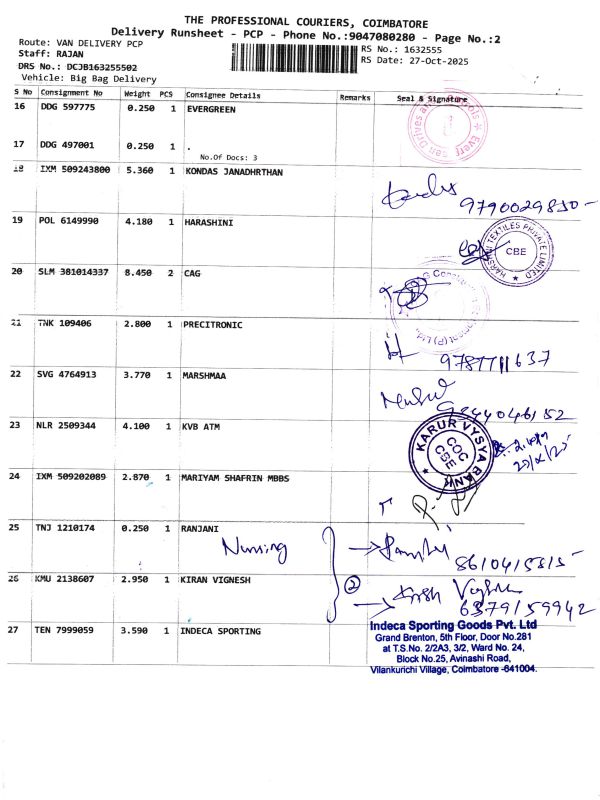 THE PROFESSIONAL COURIERS, COIMBATORE
Delivery Runsheet - PCP - Phone No.:9047080280 - Page No.:2
Route: VAN DELIVERY PCP
Staff: RAJAN
RS No.: 1632555
DRS No.: DCJB163255502
RS Date: 27-Oct-2025
Vehicle: Big Bag Delivery
S No Consignment No Weight PCS Consignee Details Remarks Seal & Signature
16 DDG 597775 0.250 1 EVERGREEN
17 DDG 497001 0.250 1 .
No.Of Docs: 3
18 IXM 509243800 5.360 1 KONDAS JANADHRTHAN
9790029830-
19 POL 6149990 4.180 1 HARASHINI
HARSHNI TEXTILES PRIVATE LIMITED
CBE
20 SLM 381014337 8.450 2 CAG
21 TNK 109406 2.800 1 PRECITRONIC
9787711637
22 SVG 4764913 3.770 1 MARSHMAA
23 NLR 2509344 4.100 1 KVB ATM
KARUR VYSYA BANK
COC
CBE
24 IXM 509202089 2.870 1 MARIYAM SHAFRIN MBBS
25 TNJ 1210174 0.250 1 RANJANI
Nursing
26 KMU 2138607 2.950 1 KIRAN VIGNESH
2
6379159942
27 TEN 7999059 3.590 1 INDECA SPORTING
Indeca Sporting Goods Pvt. Ltd
Grand Brenton, 5th Floor, Door No.281
at T.S.No. 2/2A3, 3/2, Ward No. 24,
Block No.25, Avinashi Road,
Vilankurichi Village, Coimbatore -641004.